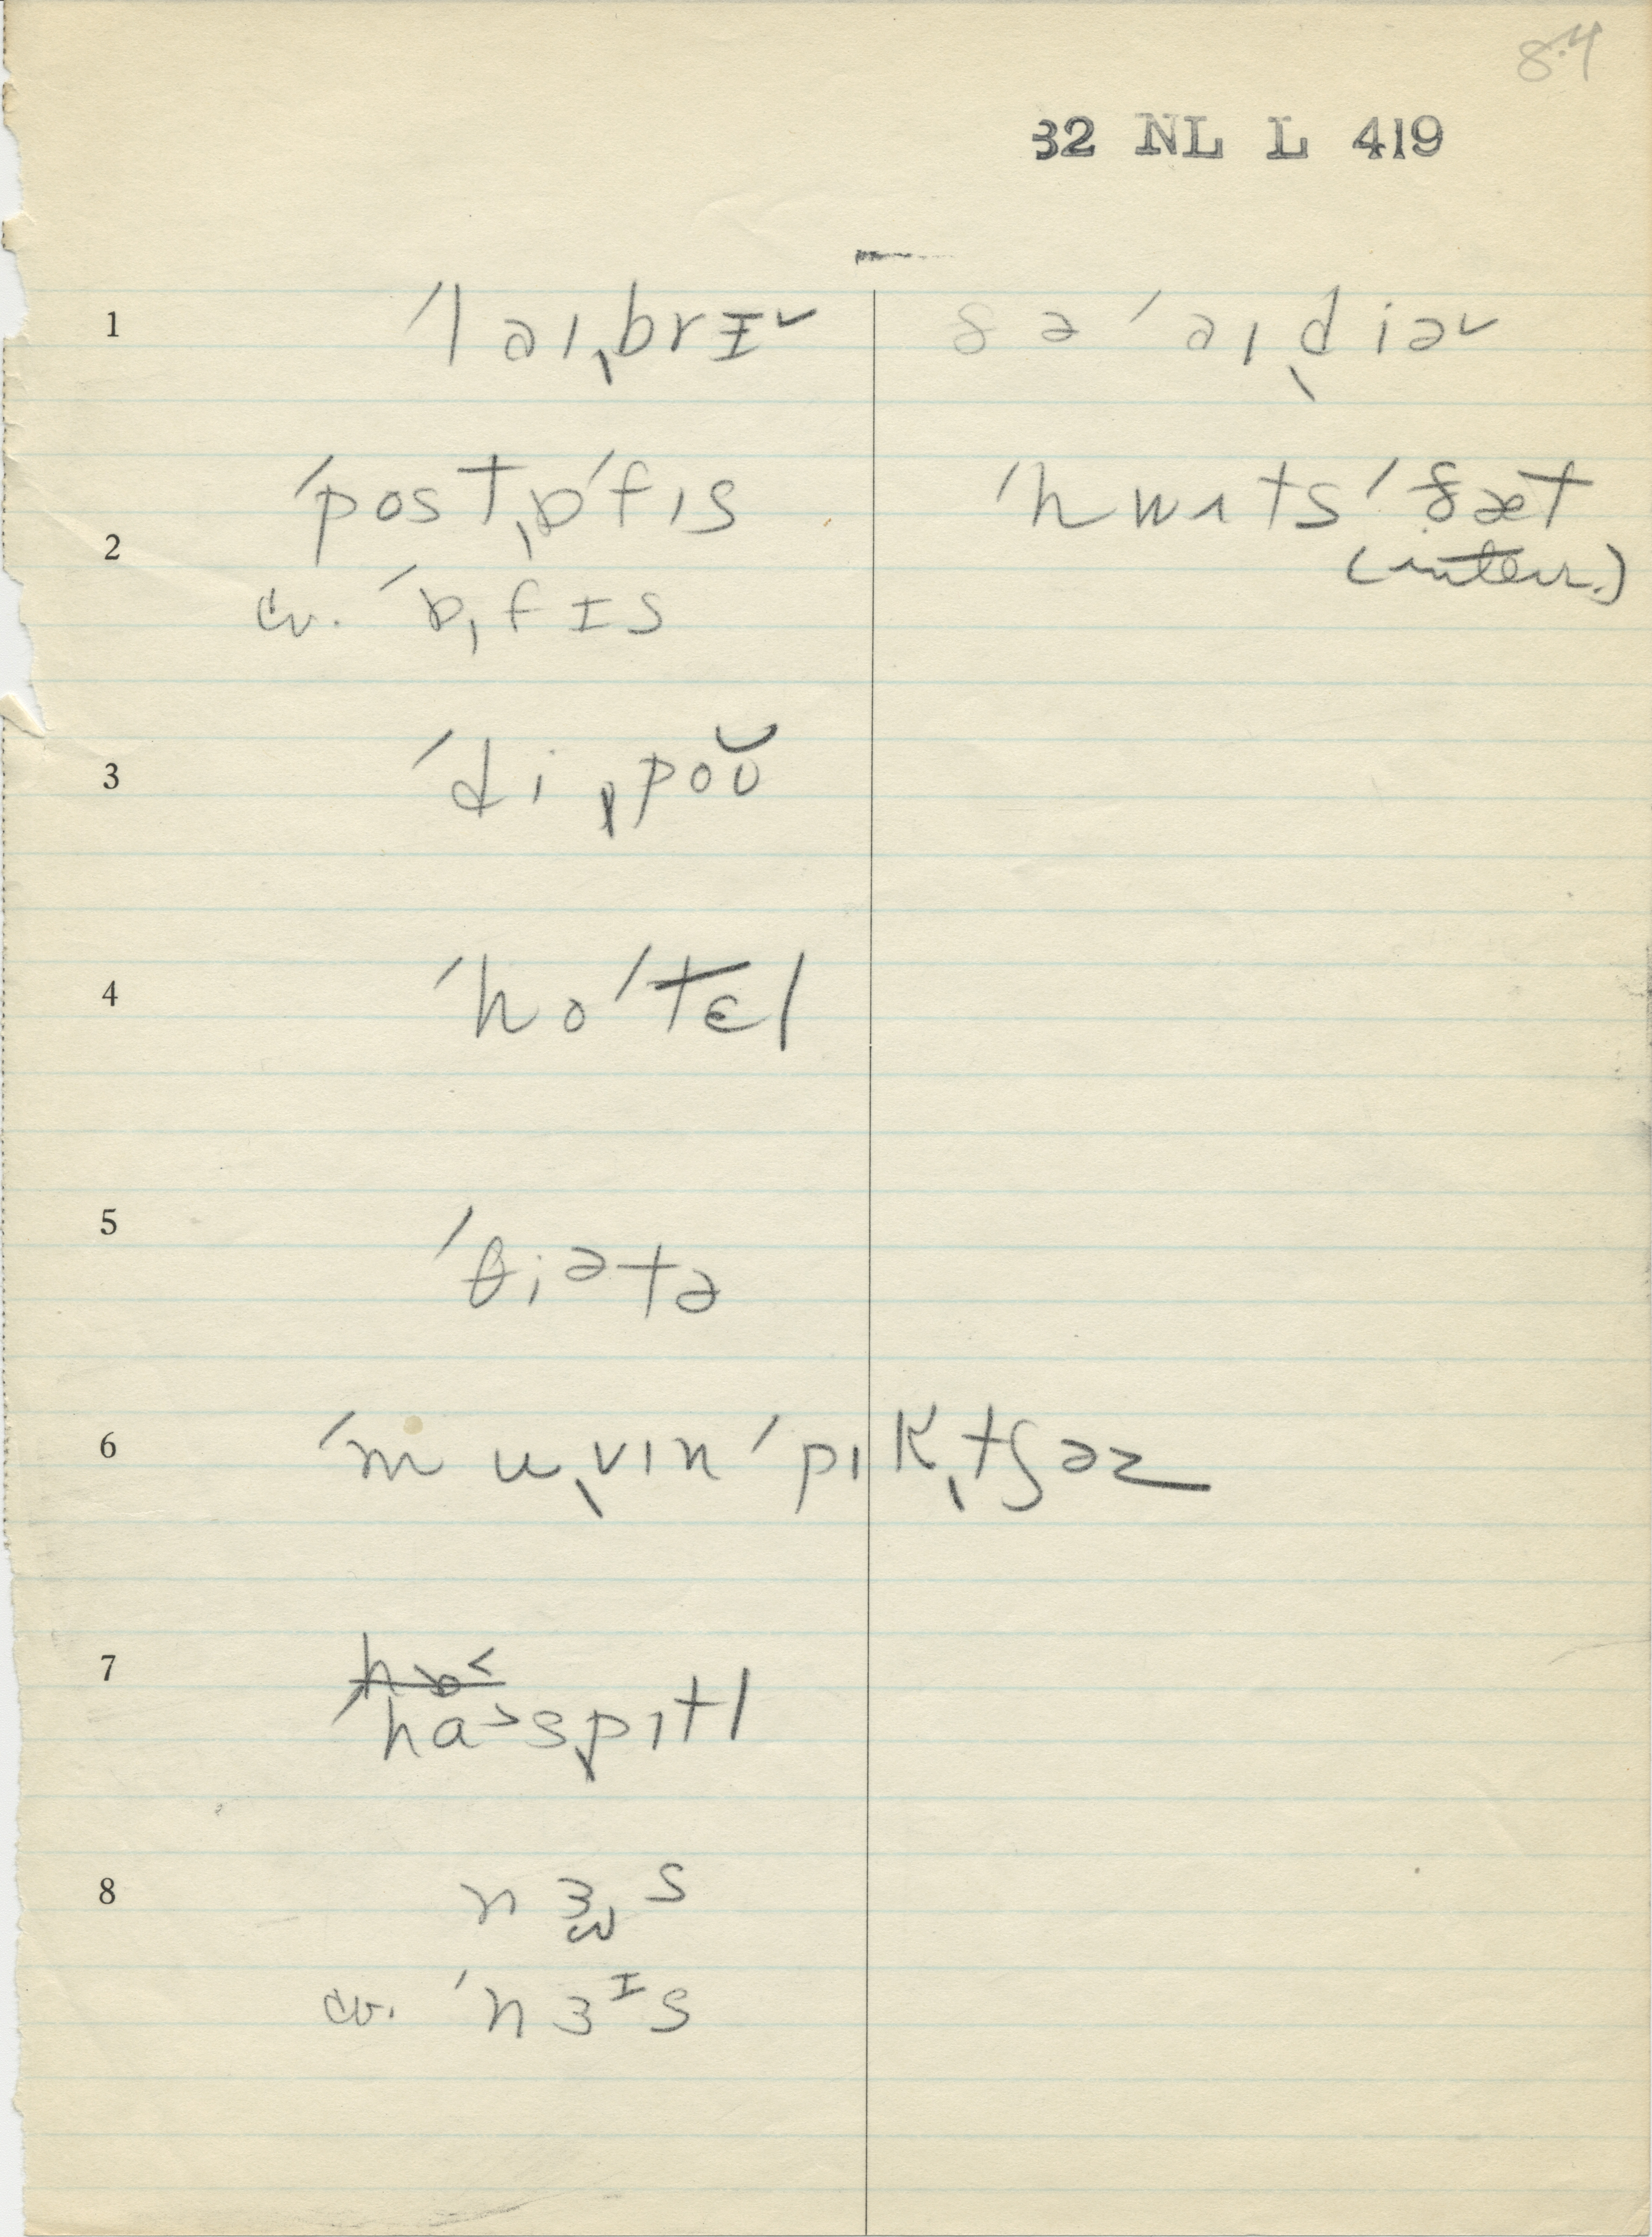 84
32 NL L 419
1 ˈlaɪˌbrɪ˅ ðə ˈaɪˌdiə˅
2 ˈpostˌɒˈfɪs ˈhwʌtsˈðæt
(interr.)
cv. ˈɒˌfɪs
3 ˈdiˌpoʊ̆
4 ˈhoˈtɛl
5 ˈθiətə
6 ˈmuˌvɪnˈpɪkˌtʃəz
7 hɒ
ˈhɑ˃sˌpɪtl
8 nɜs
cv. ˈnɜᶦs